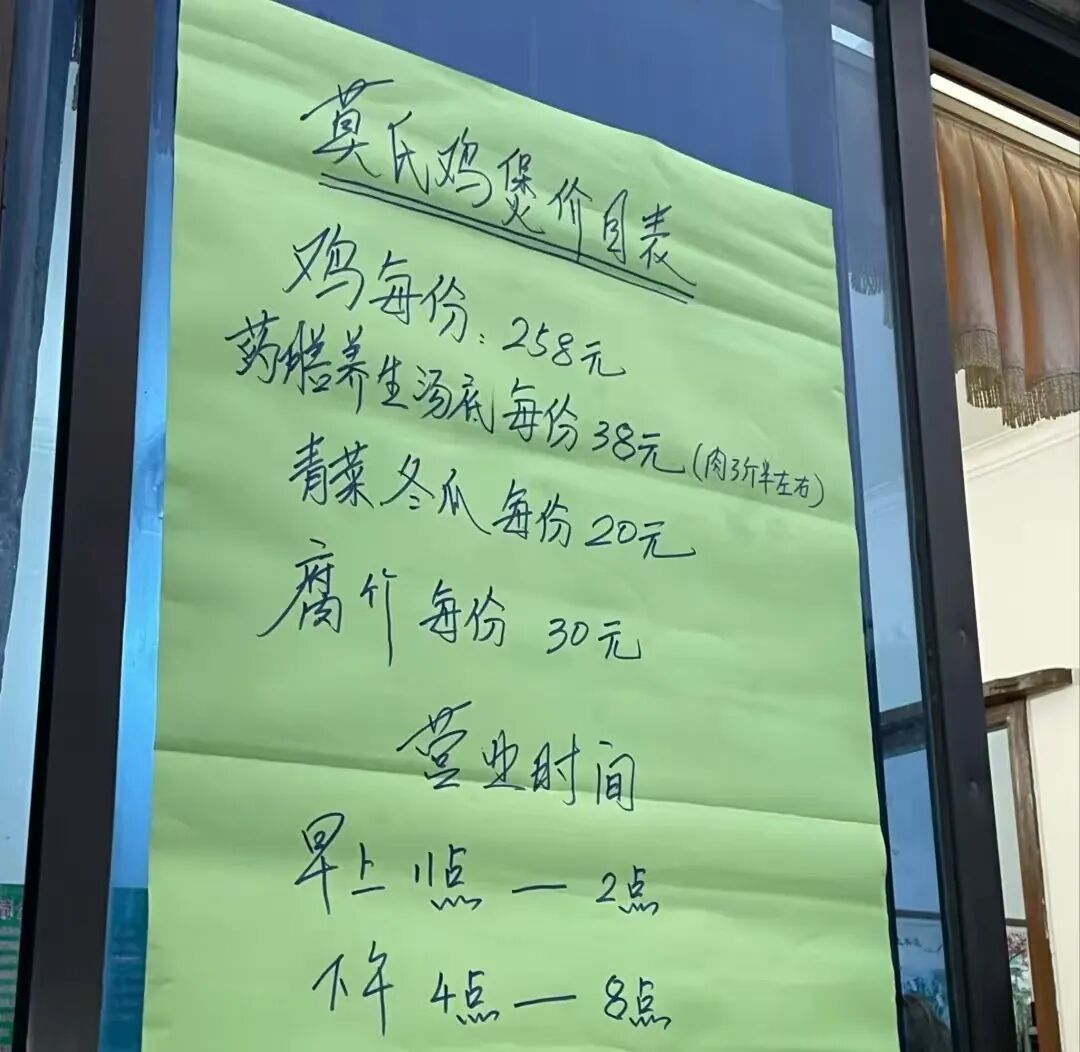 莫氏鸡煲价目表
鸡每份：258元
药膳养生汤底每份38元(肉3斤半左右)
青菜冬瓜每份20元
腐竹每份 30元
营业时间
早上 11点 — 2点
下午 4点 — 8点